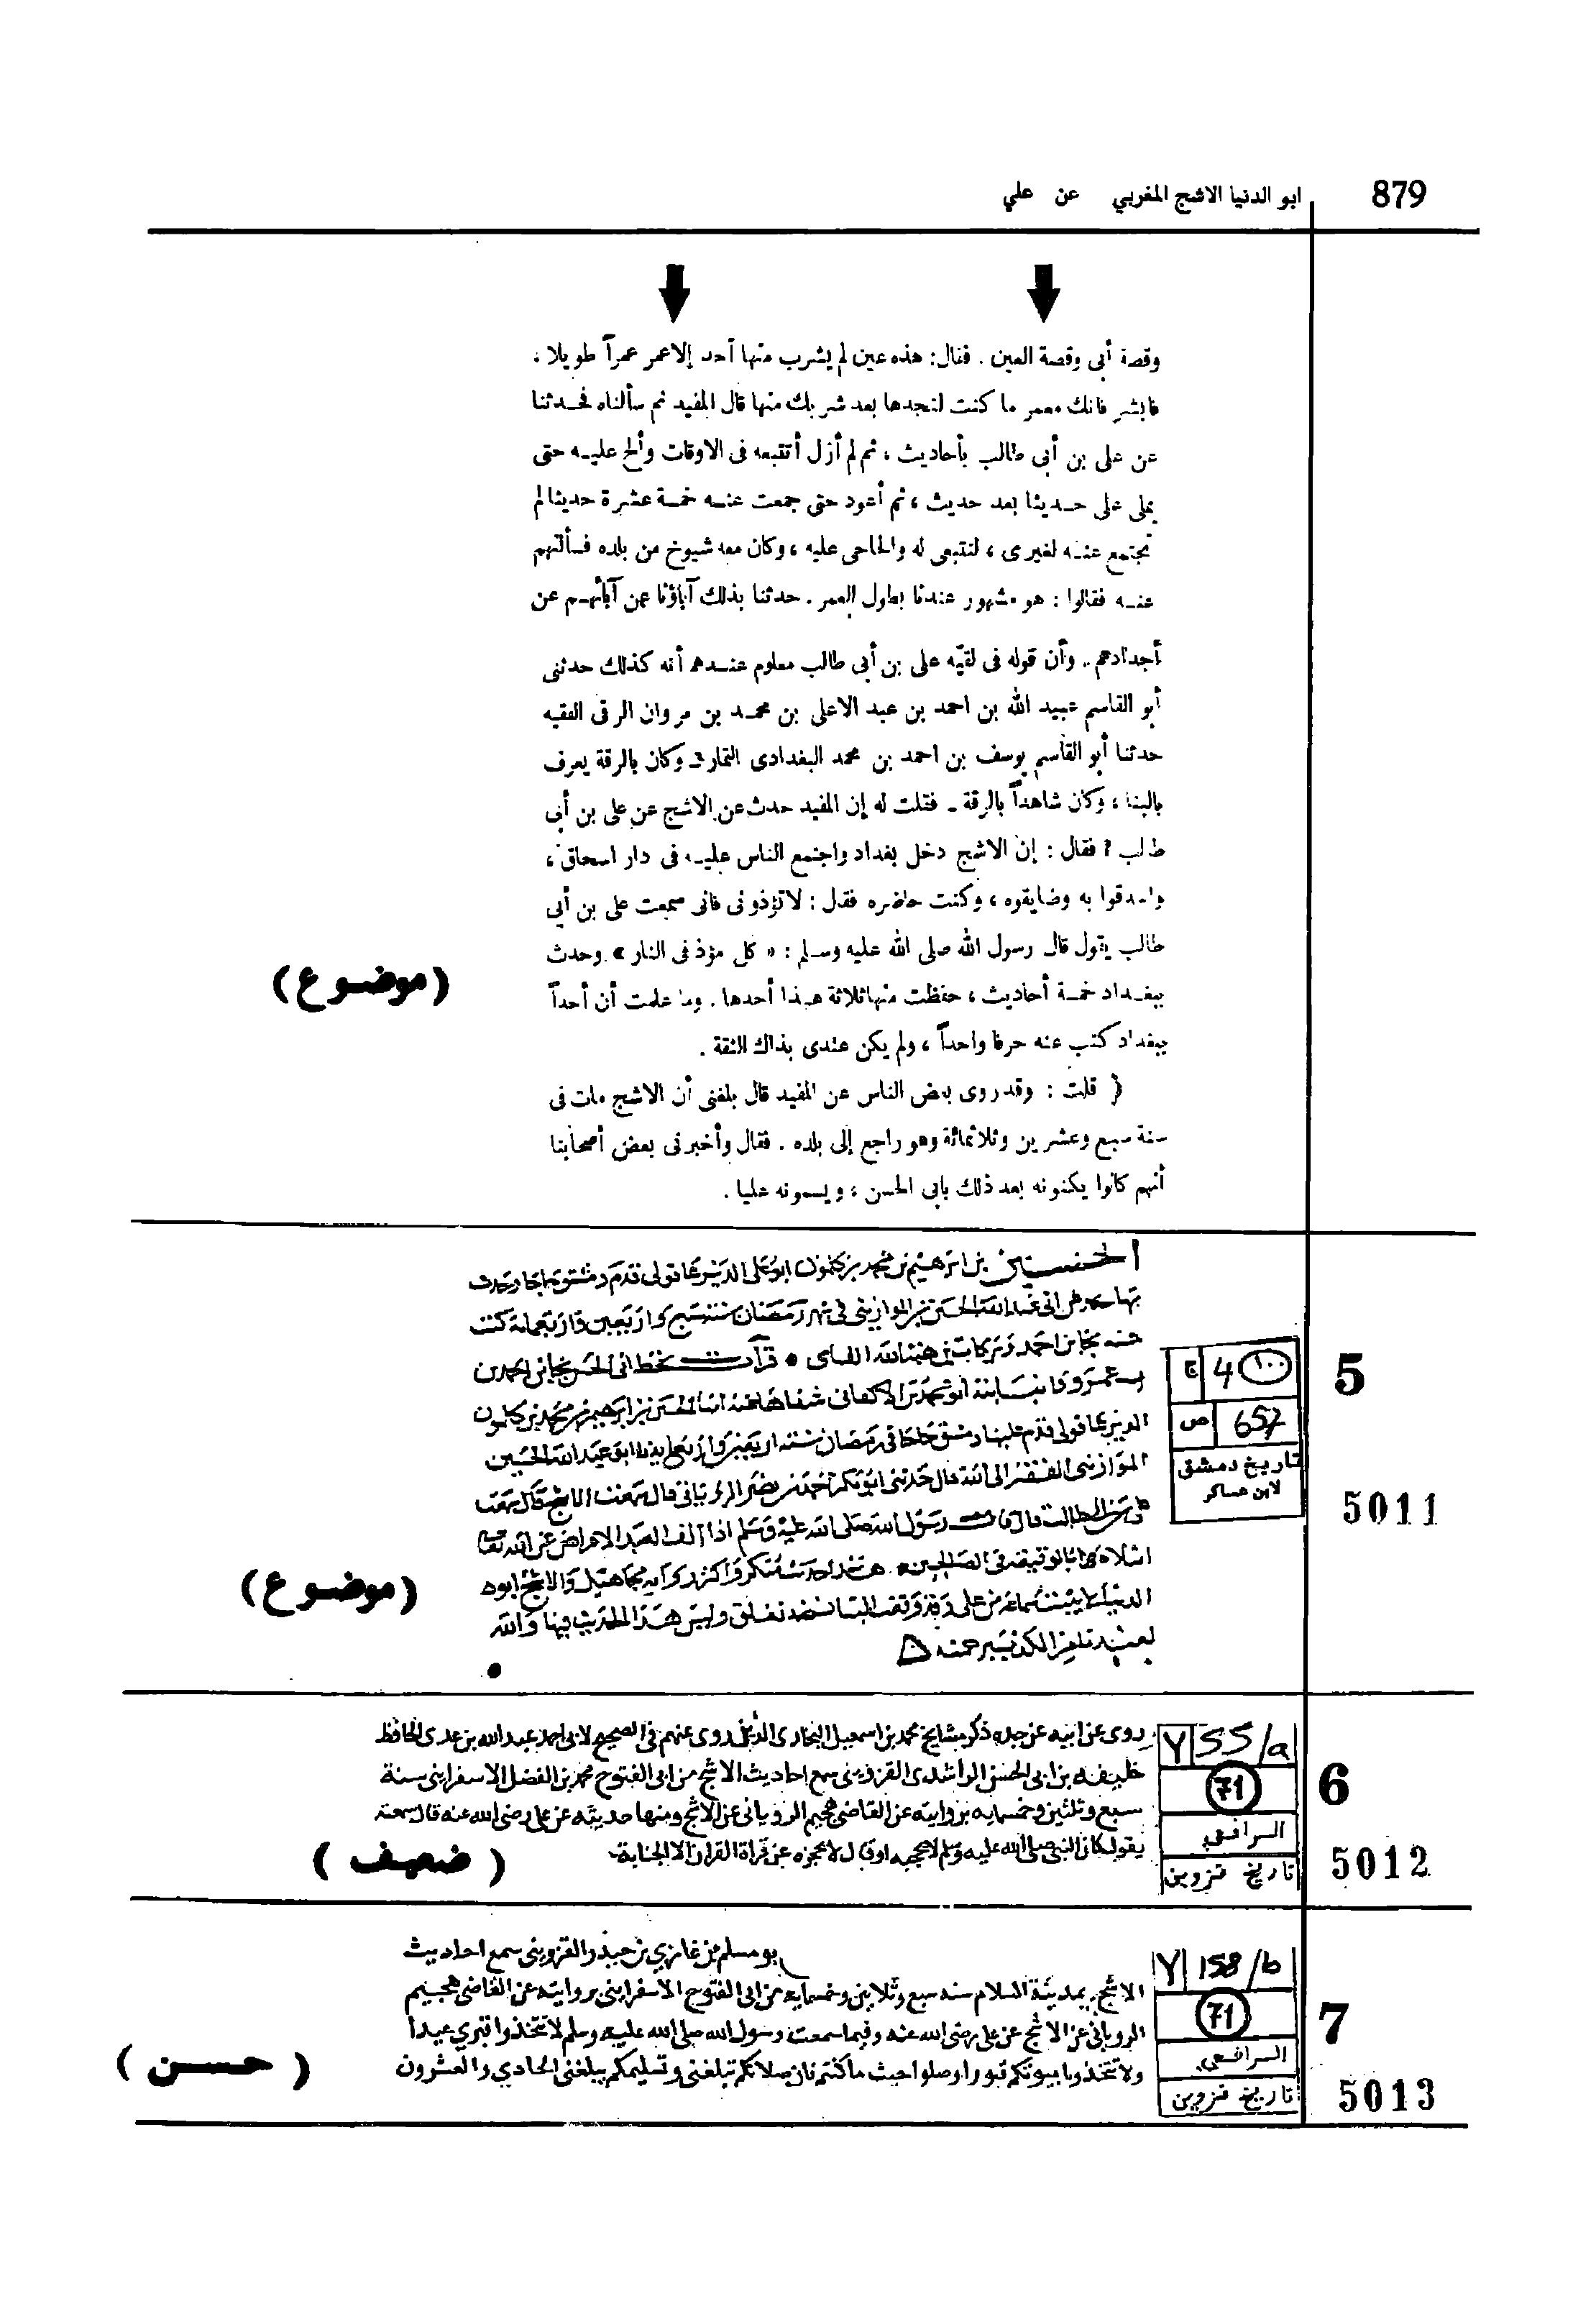 879
ابو الدنيا الاشج المغربي عن علي
وقصة أبى وقصة العين . فقال: هذه عين لم يشرب منها أحد إلا عمر عمراً طويلا ،
فابشر فانك معمر ما كنت لتجدها بعد شربك منها قال المفيد ثم سألناه فحدثنا
عن على بن أبى طالب بأحاديث ، ثم لم أزل أتتبعه فى الاوقات وألح عليه حتى
يملى على حديثا بعد حديث ، ثم أعود حتى جمعت عنه خمسة عشرة حديثا لم
تجتمع عنه لغيرى ، لتتبعى له والحاحى عليه ، وكان معه شيوخ من بلده فسألتهم
عنه فقالوا : هو مشهور عندنا بطول العمر . حدثنا بذلك آباؤنا عن آبائهم عن
أجدادهم .. وأن قوله فى لقيّه على بن أبى طالب معلوم عندهم أنه كذلك حدثنى
أبو القاسم عبيد الله بن احمد بن عبد الاعلى بن محمد بن مروان الرقى الفقيه
حدثنا أبو القاسم يوسف بن احمد بن محمد البغدادى التمار ـ وكان بالرقة يعرف
بالبنا ، وكان شاهداً بالرقة ـ فقلت له إن المفيد حدث عن الاشج عن على بن أبى
طالب ؟ فقال : إن الاشج دخل بغداد واجتمع الناس عليه فى دار اسحاق ،
واحدقوا به وضايقوه ، وكنت حاضره فقال : لا تؤذونى فانى سمعت على بن أبى
طالب يقول قال رسول الله صلى الله عليه وسلم : « كل مؤذ فى النار » . وحدث
(موضوع)
ببغداد خمسة أحاديث ، حفظت منها ثلاثة هذا أحدها . وما علمت أن أحداً
ببغداد كتب عنه حرفا واحداً ، ولم يكن عندى بذاك الثقة .
﴿ قلت : وقد روى بعض الناس عن المفيد قال بلغنى أن الاشج مات فى
سنة سبع وعشرين وثلاثمائة وهو راجع إلى بلده . فقال وأخبرنى بعض أصحابنا
أنهم كانوا يكنونه بعد ذلك بابى الحسن ، ويسمونه عليا .
5
ج 4 ١٠٠
ص 657
تاريخ دمشق
لابن عساكر
5011
الحسين بن ابرهيم بن محمد بن كلمون ابو على الدينرعاقولى قدم دمشق حاجا وحدث
بها عن ابى عبد الله الحسين بن الموازينى فى شهر رمضان سنة سبع واربعين واربعمائة كتب
عنه نجا بن احمد وبركات بن هبة الله • قرأت بخط ابى الحسن نجا بن احمد بن
عمرو وانبانيه ابو محمد بن الاكفانى شفاها عنه انا الحسين بن ابرهيم بن محمد بن كلمون
الدينرعاقولى قدم علينا دمشق حاجا فى رمضان سنة ابو عبد الله الحسين
الموازينى الفقير الى الله قال حدثنى ابو بكر احمد بن نصر الرويانى قال سمعت الاشج قال سمعت
على بن ابى طالب قال قال رسول الله صلى الله عليه وسلم اذا الف العبد الاعراض عن الله تعالى
ابتلاه الله بالوقيعة فى الصالحين • هذا حديث منكر واكثر رواته مجاهيل والاشج ابو
الدنيا لا يثبت سماعه من على وليس هذا الحديث فيها والله
(موضوع)
6
Y 55/a
71
الرافعي
تاريخ قزوين
5012
روى عن ابيه عن جده ذكر مشايخ محمد بن اسمعيل البخارى الذين روى عنهم فى الصحيح لابى احمد عبد الله بن عدى الحافظ
خليفه بن ابى الحسن الراشدى القزوينى سمع احاديث الاشج من ابى الفتوح محمد بن الفضل الاسفراينى سنة
سبع وثلثين وخمسمايه بروايته عن القاضى مجيم الرويانى عن الاشج ومنها حديثه عن على رضى الله عنه قال سمعته
يقول كان النبى صلى الله عليه وسلم لا يحجبه او قال لا يحجزه عن قراة القران الا الجنابة
(ضعيف)
7
Y 158/b
71
الرافعي
تاريخ قزوين
5013
بو مسلم بن غازي بن حيدر القزوينى سمع احاديث
الاشج بمدينة السلام سنه سبع وثلاثين وخمسمايه من ابى الفتوح الاسفراينى بروايته عن القاضى مجيم
الرويانى عن الاشج عن على رضى الله عنه وفيما سمعت رسول الله صلى الله عليه وسلم لا تتخذوا قبري عيدا
ولا تتخذوا بيوتكم قبورا وصلوا حيث ما كنتم فان صلاتكم تبلغنى وتسليمكم يبلغنى الحادي والعشرون
(حسن)